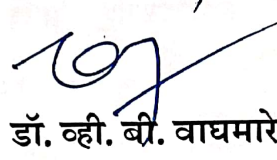 डॉ. व्ही. बी. वाघमारे